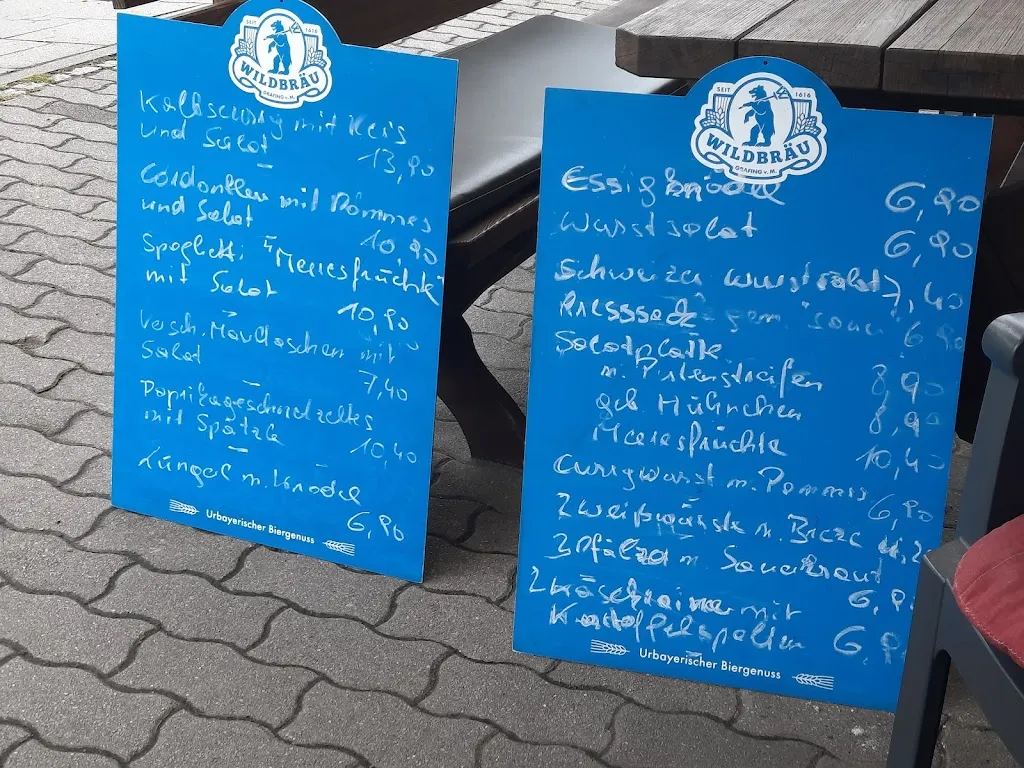 SEIT 1616
WILDBRÄU
GRAFING v. M.
Kalbscurry mit Reis
und Salat
13,90
Cordonbleu mit Pommes
und Salat
10,90
Spaghetti "Meeresfrüchte"
mit Salat
10,90
Maultaschen mit
Salat
7,40
Paprikageschnetzeltes
mit Spätzle
10,40
Lüngel m. Knödel
6,90
Urbayerischer Biergenuss
SEIT 1616
WILDBRÄU
GRAFING v. M.
Essigknödel 6,90
Wurstsalat 6,90
Schweizer Wurstsalat 7,40
Presssack 6,90
Salatplatte
m. Putenstreifen 8,90
geb. Hühnchen 8,90
Meeresfrüchte 10,40
Currywurst m. Pommes 6,90
2 Weißwürste m. Breze
3 Pfälzer m. Sauerkraut 6,9
2 Käsekrainer mit
Kartoffelspalten 6,9
Urbayerischer Biergenuss